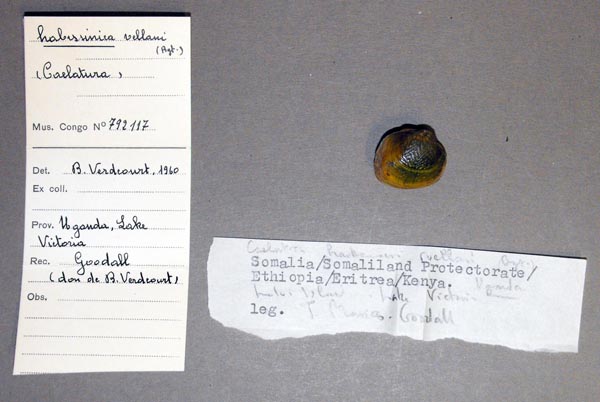 habessinica vellani
(Agt.)
(Caelatura)
Mus. Congo Nº 792117
Det. B. Verdcourt, 1960
Ex coll.
Prov. Uganda, Lake
Victoria
Rec. Goodall
(don de B. Verdcourt)
Obs.
Somalia/Somaliland Protectorate/
Ethiopia/Eritrea/Kenya. Uganda
Lake Victoria
leg. Goodall